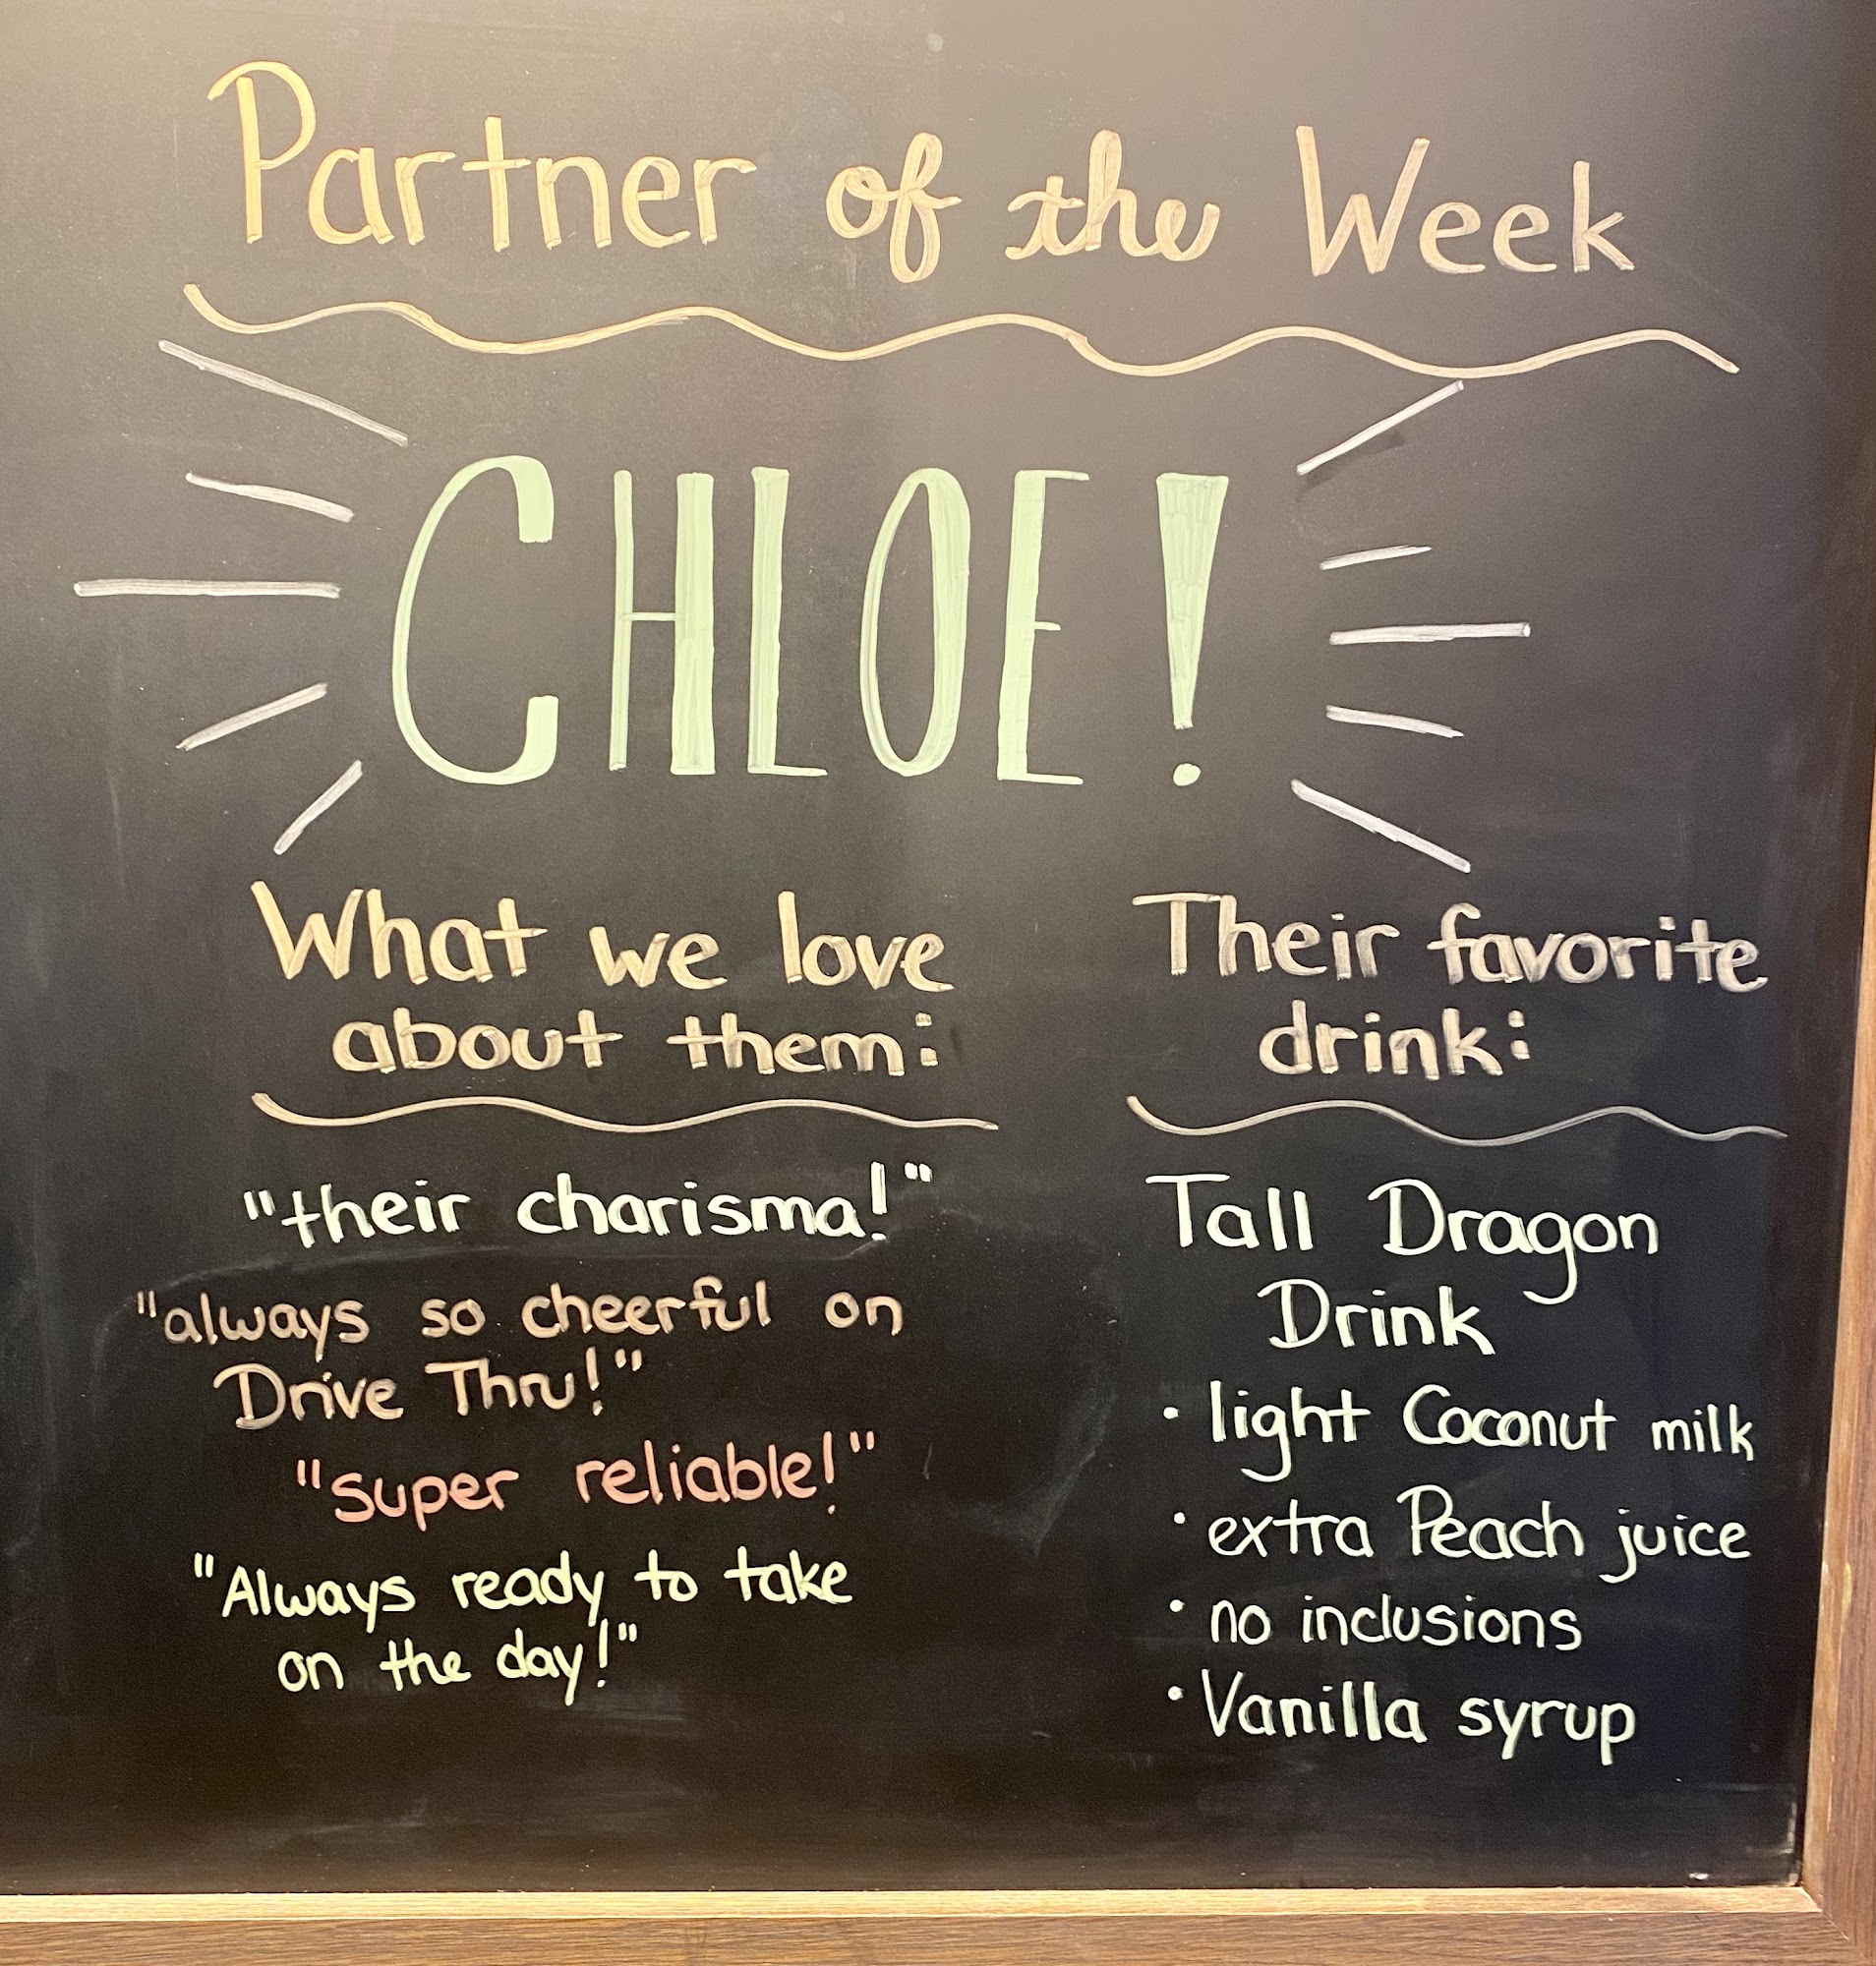 Partner of the Week
CHLOE!
What we love
about them:
"their charisma!"
"always so cheerful on
Drive Thru!"
"super reliable!"
"Always ready to take
on the day!"
Their favorite
drink:
Tall Dragon
Drink
• light Coconut milk
• extra Peach juice
• no inclusions
• Vanilla syrup